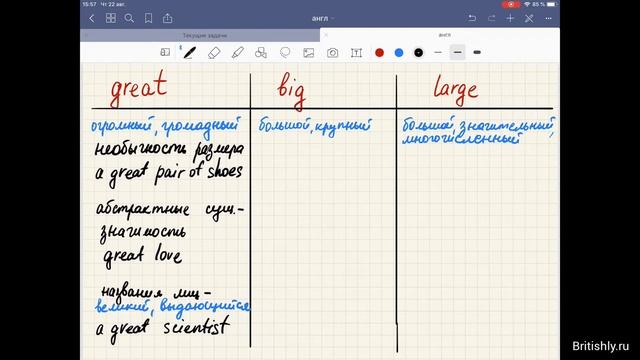 15:57 Чт 22 авг.
англ
85 %
Текущие задачи
англ
great
big
large
огромный, громадный
большой, крупный
большой, значительный,
многочисленный
необычность размера
a great pair of shoes
абстрактные сущ. -
значимость
great love
названия лиц -
великий, выдающийся
a great scientist
Britishly.ru